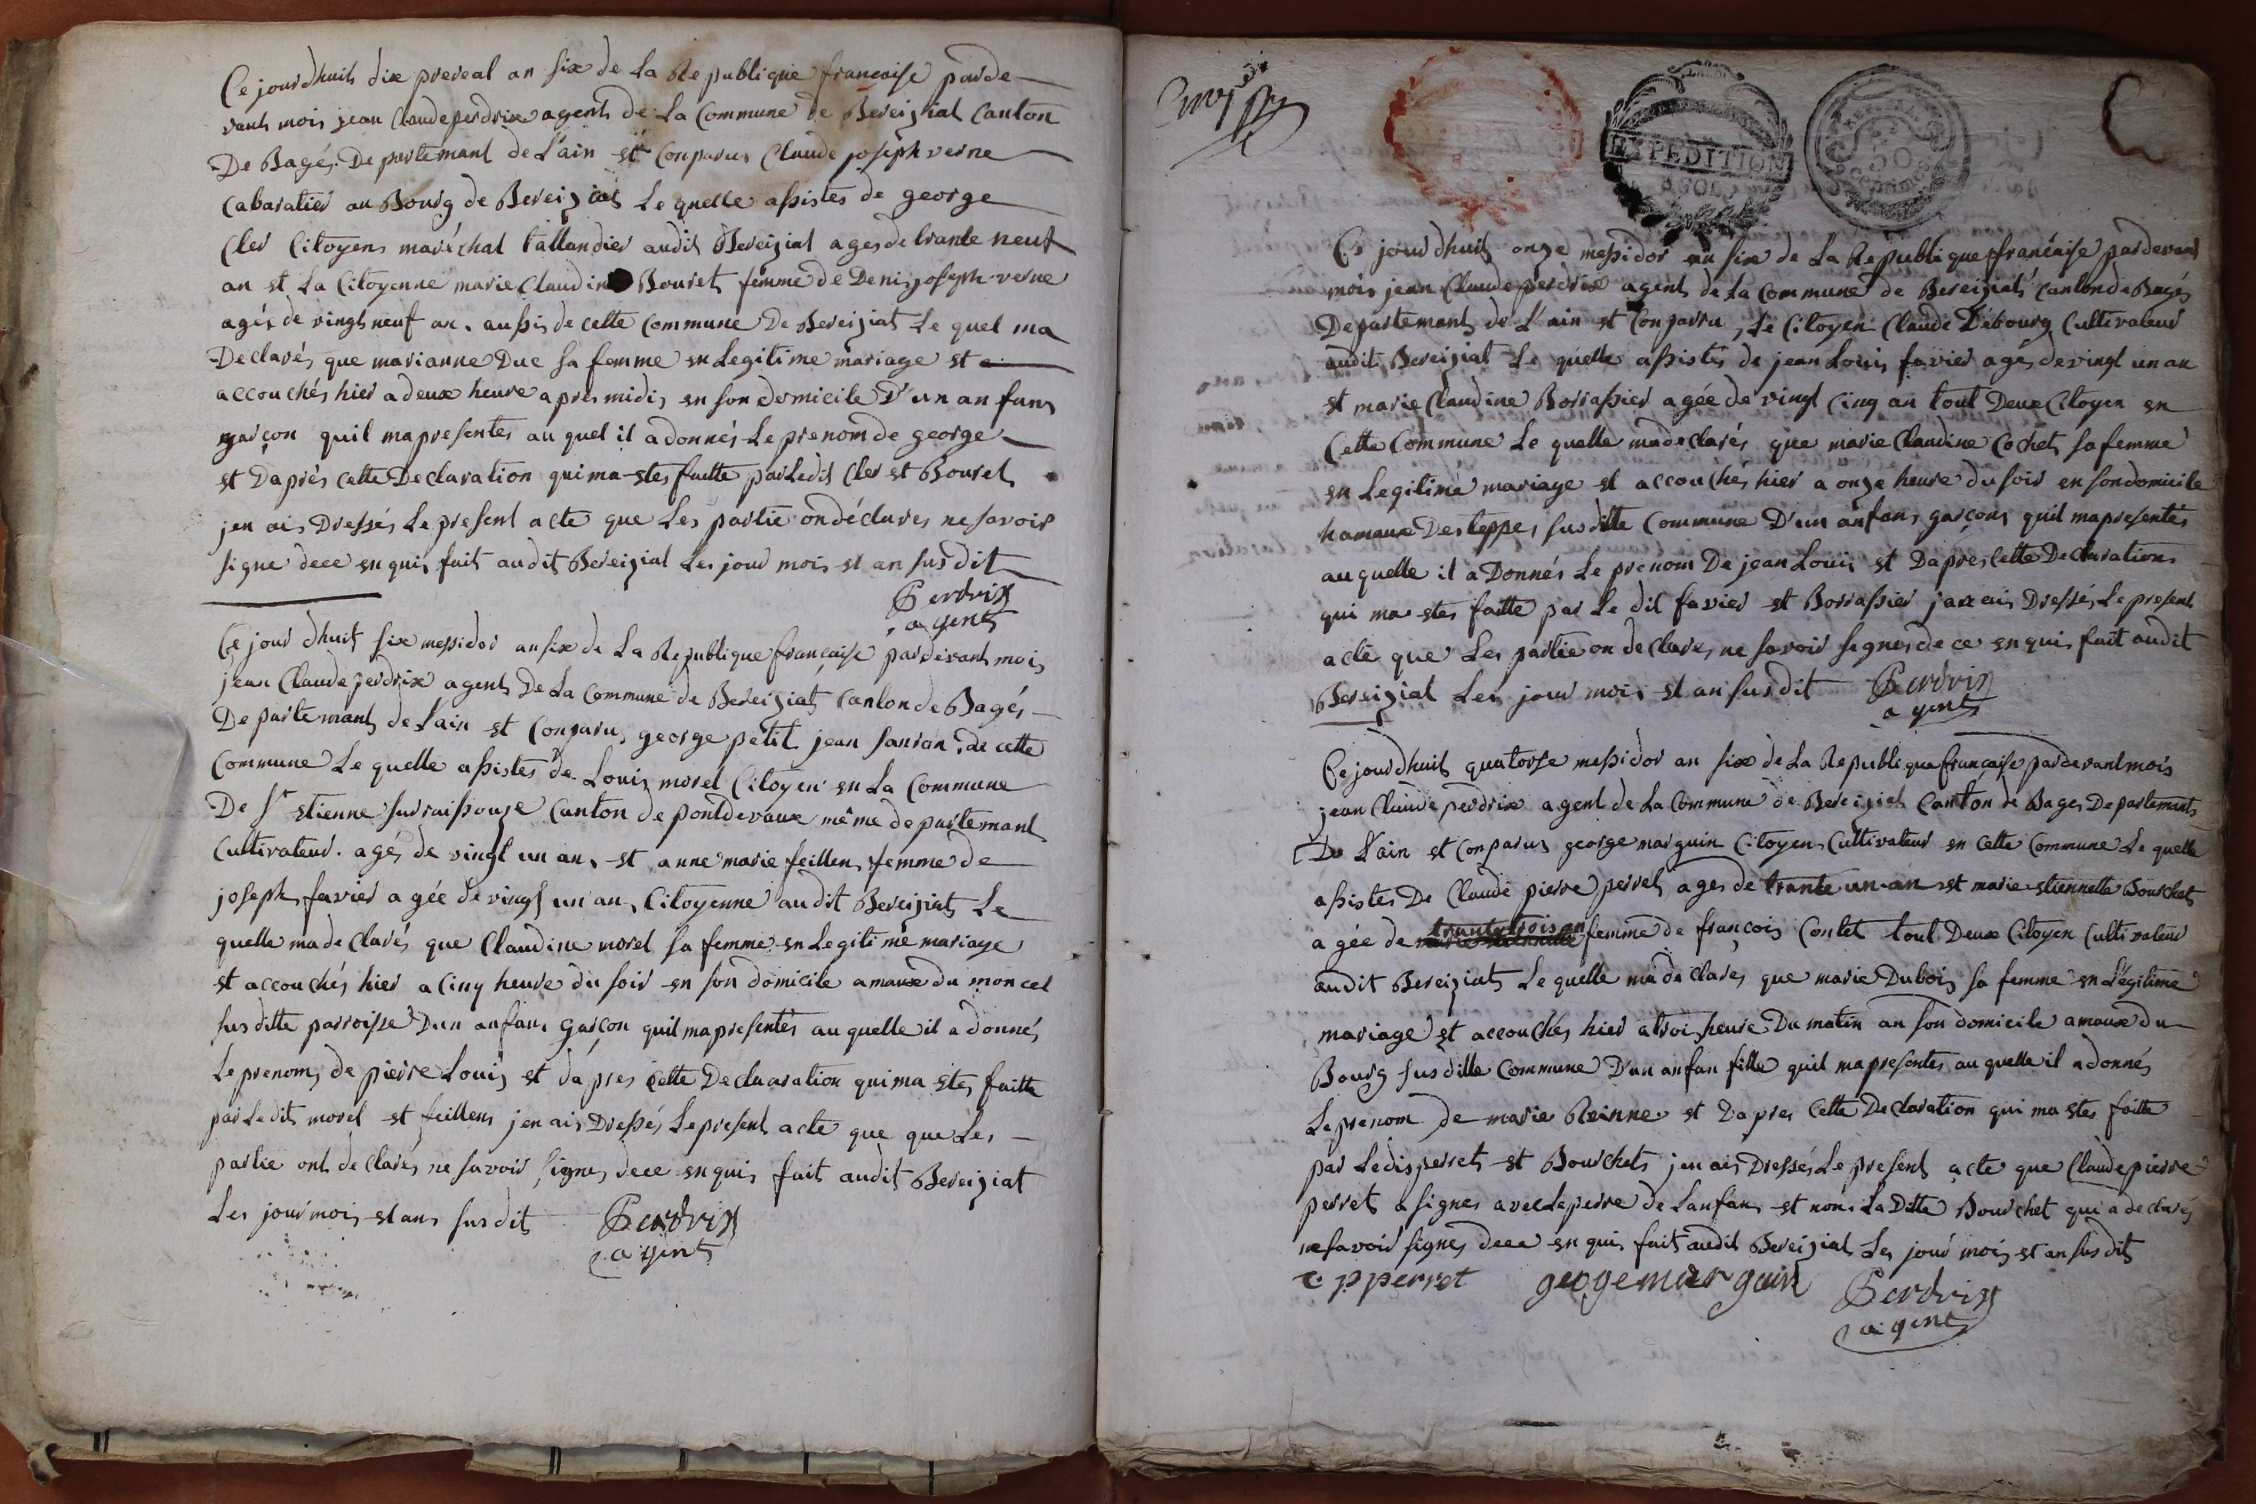 Ce jourdhuit dix prereal an six de La Republique francoise parde
vant mois jean Claude perdrix agent de La Commune de Bereiziat Canton
De Bagés Departemant de L'ain est Conparus Claude joseph verne
Cabaratier au Bourg de Bereiziat Le quelle assistes de george
Cler Citoyens maréchal tallandier audit Bereiziat ages de trante neuf
an et La Citoyenne marie Claudine Bouret femme de Denis joseph verne
agés de vingt neuf an. aussis de cette Commune De Bereiziat Le quel ma
Declarés que marianne Duc sa femme en Legitime mariage est
accouchés hier a deux heure apres midis en son domicile D'un anfans
garçon quil mapresentes au quel il a donnés Le prenom de george
et Daprés cette Declaration qui ma estes faitte par Ledit Cler et Bouret
jen ais Dressés Le present acte que Les partie on déclares ne savoir
signe dece enquis fait audit Bereiziat Les jour mois et an susdit
Perdrix
agent
Ce jour dhuit six messidor an six de La Republique francaise pardevant mois
jean Claude perdrix agent De La Commune de Bereiziat Canton de Bagés
Departemant de L'ain est Conparu george petit jean sauron de cette
Commune Le quelle assistes de Louis morel Citoyen en La Commune
De St estienne sur raissouze Canton de pontdevaux même departemant
Cultivateur agés de vingt un an et anne marie feillen femme de
joseph favier agée de vingt un an Citoyenne audit Bereiziat Le
quelle ma de Clarés que Claudine morel sa femme en Legitime mariage
est accouchés hier a Cinq heure du soir en son domicile amaux du moncel
sus ditte parroisse D'un anfans garçon quil mapresentés au quelle il a donné
Le prenom de pierre Louis et dapres cette Declaaration qui ma estes faitte
par Ledit morel et feillens jen ais Dressés Lepresent acte que que Les
partie ont de Clarés ne savoir signes dece enquis fait audit Bereiziat
Les jour mois et ans sus dit Perdrix
agent
EXPEDITION
50
Centimes
Ce jour dhuit onze messidor an six de La Republique francaise pardevant
mois jean Claude perdrix agent de La Commune de Bereiziat Canton de Bagés
Departemant de L'ain est Conparu, Le Citoyen Claude Débourg Cultivateur
audit Bereiziat Le quelle assistés de jean Louis favier agés de vingt un an
et marie Claudine Borrassier agée de vingt Cinq an tout Deux Citoyen en
Cette Commune Le quelle ma de clarés que marie Claudine Cochet sa femme
en Legitime mariage est accouchés hier a onze heure du soir en son domicile
hamaux Des teppes sus ditte Commune D'un anfans garçons quil mapresentes
au quelle il a Donnés Le prenom De jean Louis et Dapres Cette Declarations
qui ma estes faitte par Le dit favier et Borrassier jan ais Dressés Le present
acte que Les partie on de clares ne savoir signes de ce enquis fait audit
Bereiziat Les jour mois et an sus dit Perdrix
agent
Ce jourdhuit quatorse messidor an six de La Republiqua francaise pardevant mois
jean Claude perdrix agent de La Commune de Bereiziat Canton de Bages Departemants
De L'ain est Conparus george marguin Citoyens Cultivateur en Cette Commune Le quelle
assistes De Claude pierre perret ages de trante un an et marie estiennette Bourchet
agée de trante trois an femme de françois Contet tout Deux Citoyen Cultivateur
audit Bereiziat Le quelle ma de clares que marie Dubois sa femme en Légitime
mariage est accouchés hier a troi heure Du matin an son domicile amaux du
Bourg sus ditte Commune D'un anfan fille quil mapresentes au quelle il a donnés
Le prenom de marie Reinne et Dapres Cette Declaration qui ma estes faitte
par Ledis perret et Bourchets jen ais Dressés Le present acte que Claude pierre
perret a signes avec Leperre de Lanfans et non La Ditte Bourchet qui a declarés
ne savoir signes dece enquis fait audit Bereiziat Les jour mois et an susdit
c p perret george marguin Perdrix
agent